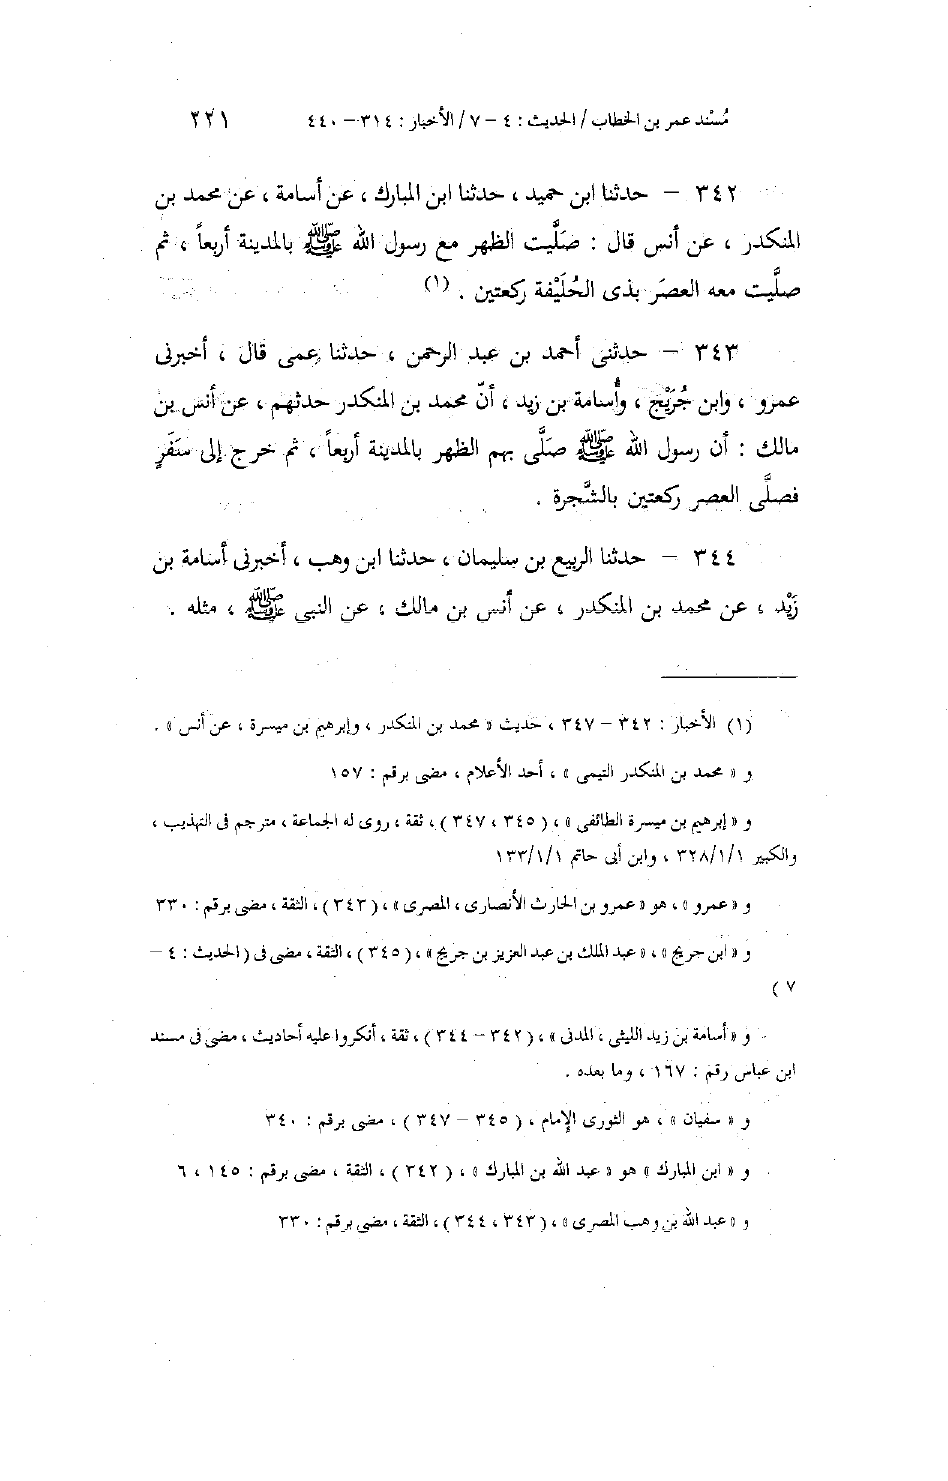 مُسْند عمر بن الخطاب / الحديث : ٤ – ٧ / الأخبار : ٣١٤ – ٤٤٠ ٢٢١
٣٤٢ – حدثنا ابن حميد ، حدثنا ابن المبارك ، عن أسامة ، عن محمد بن
المنكدر ، عن أنس قال : صَلَّيت الظهر مع رسول الله ﷺ بالمدينة أربعاً ، ثم
صلَّيت معه العصرَ بذى الحُلَيْفة ركعتين . (١)
٣٤٣ – حدثنى أحمد بن عبد الرحمن ، حدثنا عمى قال ، أخبرنى
عمرو ، وابن جُرَيْج ، وأُسامة بن زيد ، أنّ محمد بن المنكدر حدثهم ، عن أنس بن
مالك : أن رسول الله ﷺ صَلَّى بهم الظهر بالمدينة أربعاً ، ثم خرج إلى سَفَرٍ
فصلَّى العصر ركعتين بالشَّجرة .
٣٤٤ – حدثنا الربيع بن سليمان ، حدثنا ابن وهب ، أخبرنى أسامة بن
زَيْد ، عن محمد بن المنكدر ، عن أنس بن مالك ، عن النبى ﷺ ، مثله .
(١) الأخبار : ٣٤٢ – ٣٤٧ ، حديث « محمد بن المنكدر ، وإبرهيم بن ميسرة ، عن أنس » .
و « محمد بن المنكدر التيمى » ، أحد الأعلام ، مضى برقم : ١٥٧
و « إبرهيم بن ميسرة الطائفى » ، ( ٣٤٥ ، ٣٤٧ ) ، ثقة ، روى له الجماعة ، مترجم فى التهذيب ،
والكبير ٣٢٨/١/١ ، وابن أبى حاتم ١٣٣/١/١
و « عمرو » ، هو « عمرو بن الحارث الأنصارى ، المصرى » ، ( ٣٤٣ ) ، الثقة ، مضى برقم : ٣٣٠
و « ابن جريج » ، « عبد الملك بن عبد العزيز بن جريج » ، ( ٣٤٥ ) ، الثقة ، مضى فى ( الحديث : ٤ –
٧ )
و « أسامة بن زيد الليثى ، المدنى » ، ( ٣٤٢ – ٣٤٤ ) ، ثقة ، أنكروا عليه أحاديث ، مضى فى مسند
ابن عباس رقم : ١٦٧ ، وما بعده .
و « سفيان » ، هو الثورى الإمام ، ( ٣٤٥ – ٣٤٧ ) ، مضى برقم : ٣٤٠
و « ابن المبارك » هو « عبد الله بن المبارك » ، ( ٣٤٢ ) ، الثقة ، مضى برقم : ١٤٥ ، ٦
و « عبد الله بن وهب المصرى » ، ( ٣٤٣ ، ٣٤٤ ) ، الثقة ، مضى برقم : ٣٣٠